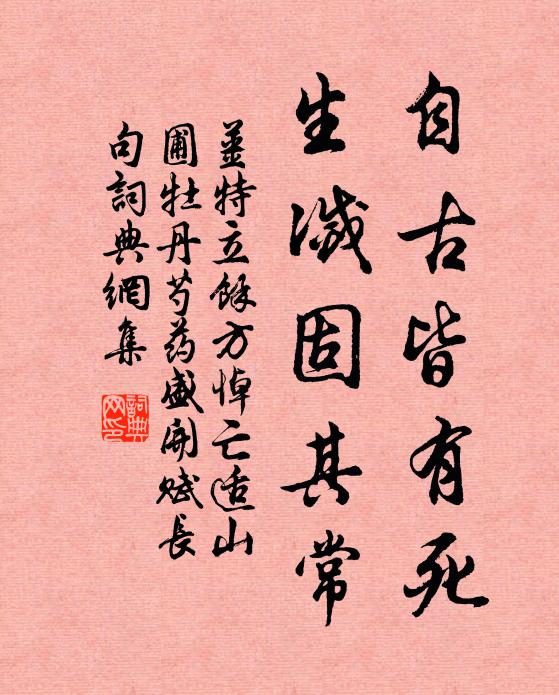 自古皆有死
生滅固其常
姜特立餘方悼亡适山
圃牡丹芍葯盛開賦長
句詞典網集
詞典網印